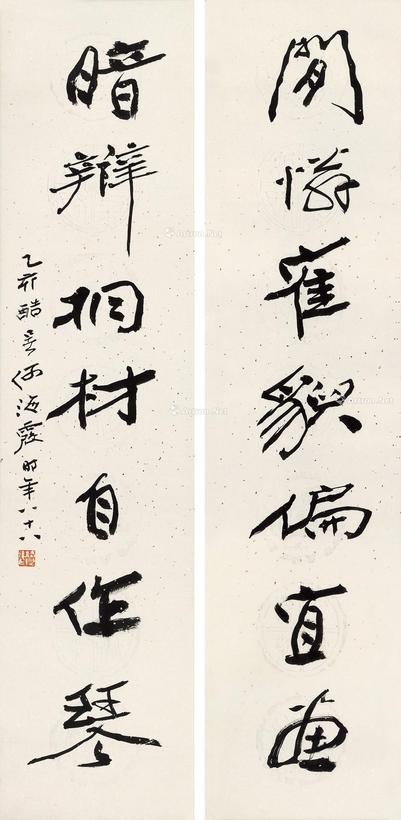 閒憐寉貌偏宜畫
暗辨桐材自作琴
乙亥酷暑何海霞時年八十八